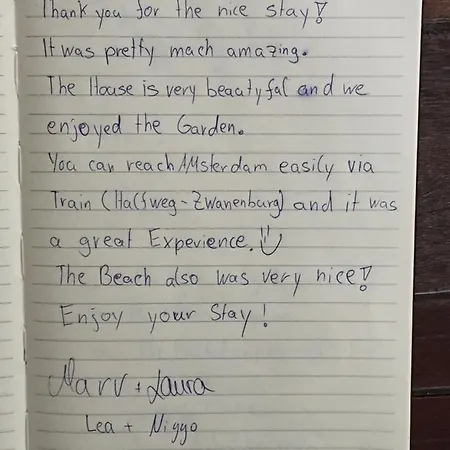 Thank you for the nice stay!
It was pretty mach amazing.
The House is very beautyful and we
enjoyed the Garden.
You can reach AMsterdam easily via
Train (Halfweg-Zwanenburg) and it was
a great Experience.
The Beach also was very nice!
Enjoy your Stay!
Marv + Laura
Lea + Niggo